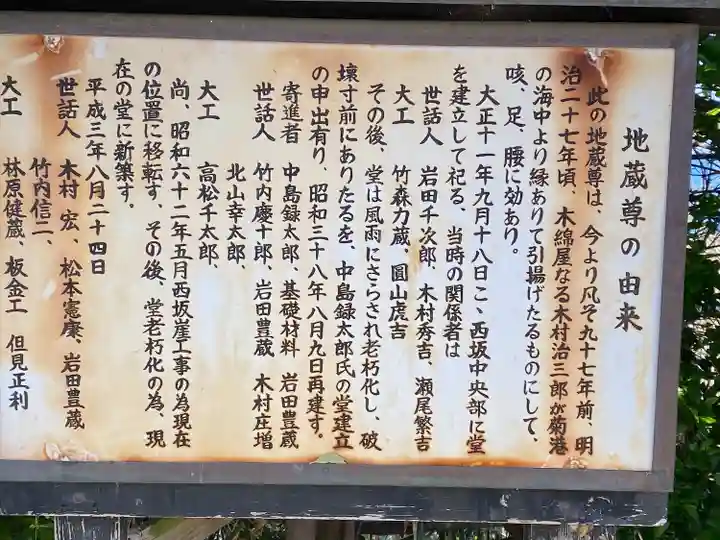 地蔵尊の由来
此の地蔵尊は、今より凡そ九十七年前、明
治二十七年頃、木綿屋なる木村治三郎が菊港
の海中より縁ありて引揚げたるものにして、
咳、足、腰に効あり。
大正十一年九月十八日こ、西坂中央部に堂
を建立して祀る、当時の関係者は
世話人 岩田千次郎、木村秀吉、瀬尾繁吉
大工 竹森力蔵、圓山虎吉
その後、堂は風雨にさらされ老朽化し、破
壊寸前にありたるを、中島録太郎氏の堂建立
の申出有り、昭和三十八年八月九日再建す。
寄進者 中島録太郎、基礎材料 岩田豊蔵
世話人 竹内慶十郎、岩田豊蔵 木村庄増
北山幸太郎、
大工 高松千太郎、
尚、昭和六十二年五月西坂崖工事の為現在
の位置に移転す、その後、堂老朽化の為、現
在の堂に新築す。
平成三年八月二十四日
世話人 木村 宏、松本憲康、岩田豊蔵
竹内信二、
大工 林原健蔵、板金工 但見正利